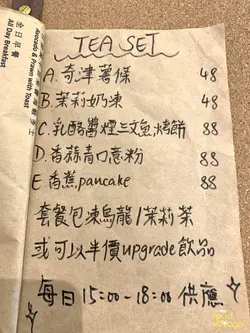 全日早餐
All Day Breakfast
Avocado & Prawn with Toast
TEA SET
A. 奇津薯條 48
B. 茉莉奶凍 48
C. 乳酪醬煙三文魚烤餅 88
D. 香蒜青口意粉 88
E 香蕉 pancake 88
套餐包凍烏龍/茉莉茶
或可以半價upgrade飲品
每日 15:00-18:00 供應